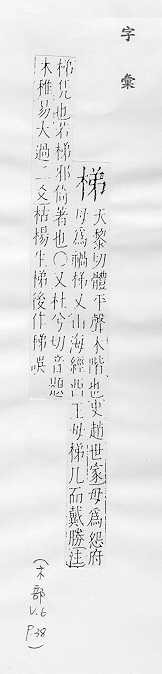 字彙
梯
天黎切體平聲木階也史趙世家毋為怨府
毋為禍梯又山海經西王母梯几而戴勝註
梯凭也若梯邪倚著也〇又杜兮切音題
木稚易大過二爻枯楊生梯後作稊誤
(木部
V.6
P38)